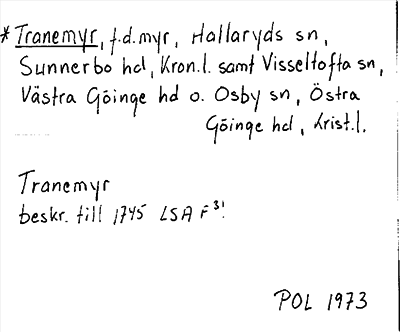 *Tranemyr, f.d. myr, Hallaryds sn,
Sunnerbo hd, Kron.l. samt Visseltofta sn,
Västra Göinge hd o. Osby sn, Östra
Göinge hd, Krist.l.
Tranemyr
beskr. till 1745 LSA F 31.
POL 1973